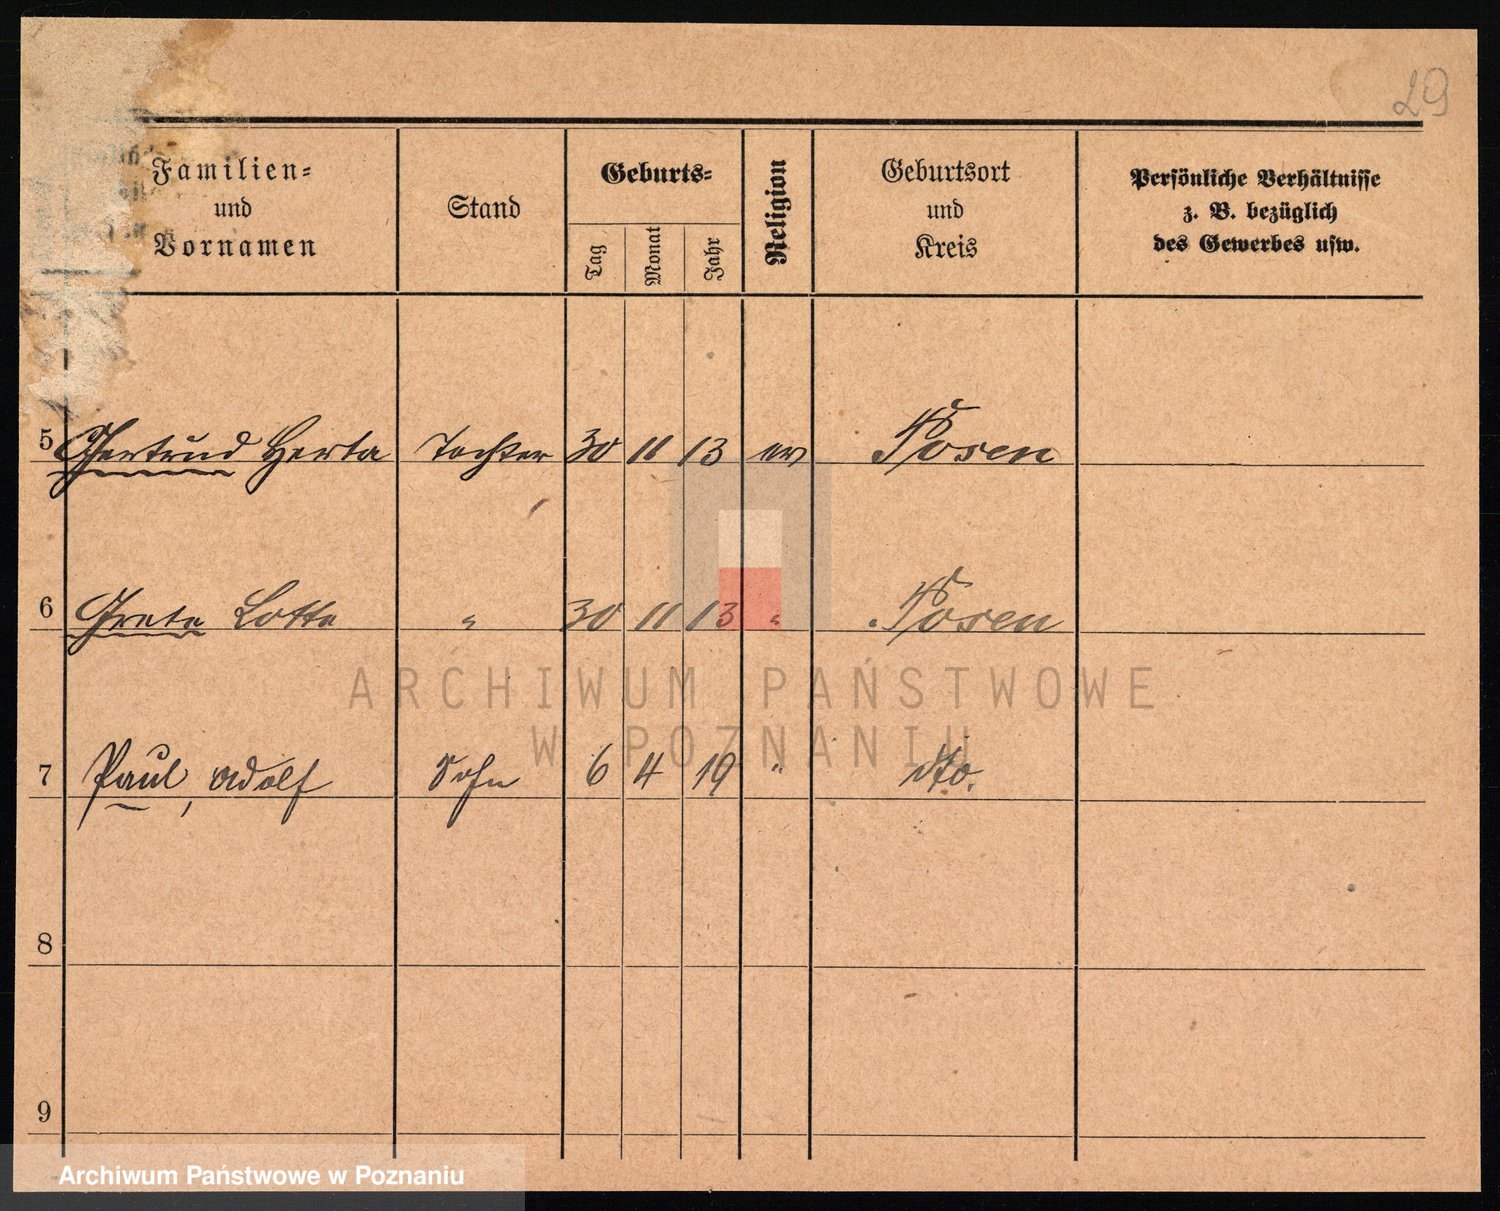 29
Familien=
und
Vornamen
Stand
Geburts=
Tag
Monat
Jahr
Religion
Geburtsort
und
Kreis
Persönliche Verhältnisse
z. B. bezüglich
des Gewerbes usw.
5 Gertrud Herta Tochter 30 11 13 ev Posen
6 Grete Lotte " 30 11 13 " Posen
ARCHIWUM PAŃSTWOWE
W POZNANIU
7 Paul, Adolf Sohn 6 4 19 " dto.
8
9
Archiwum Państwowe w Poznaniu